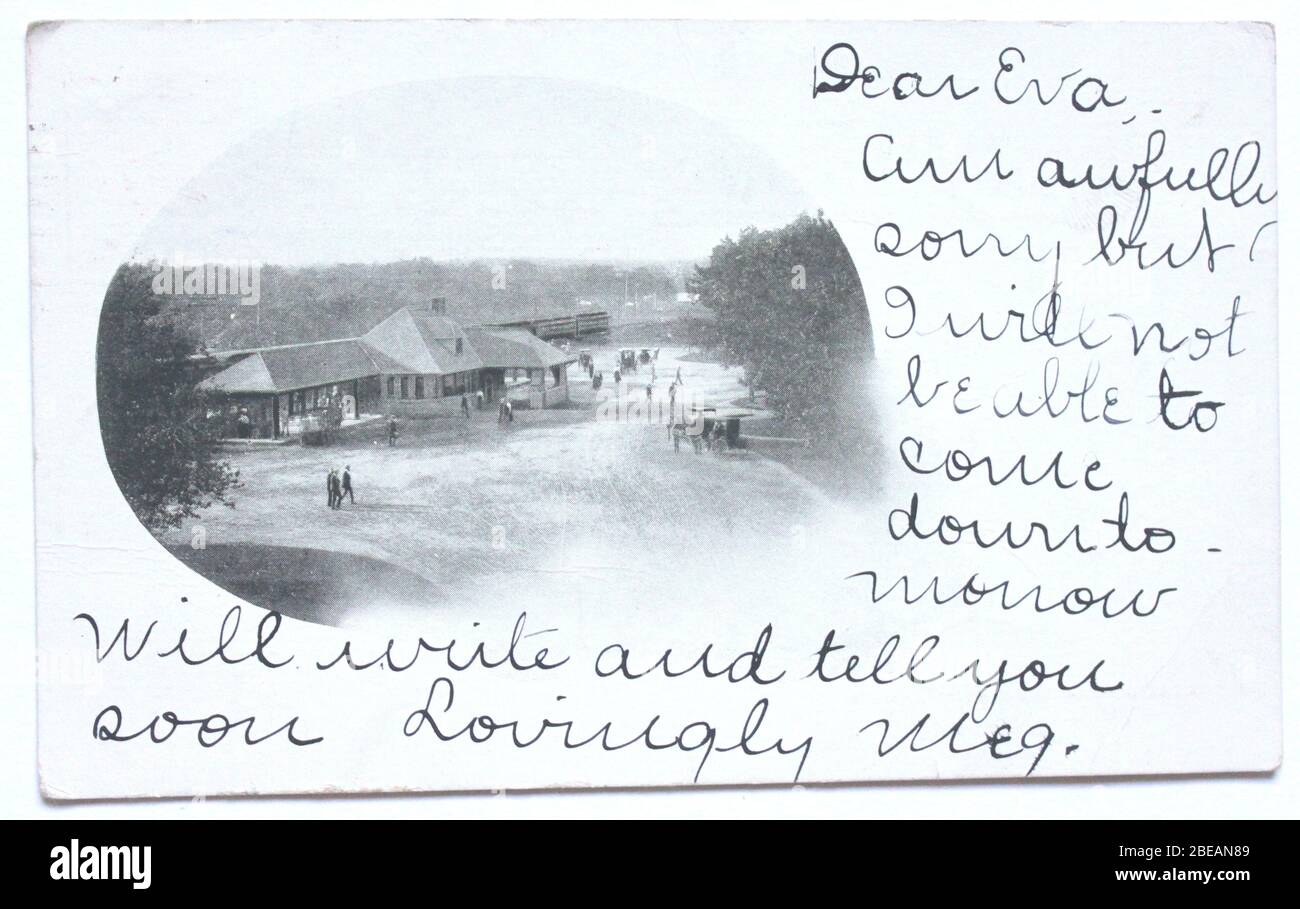 Dear Eva,.
Am awfully
sorry but
I will not
be able to
come
down to-
morrow
Will write and tell you
soon Lovingly Meg.
alamy
Image ID: 2BEAN89
www.alamy.com